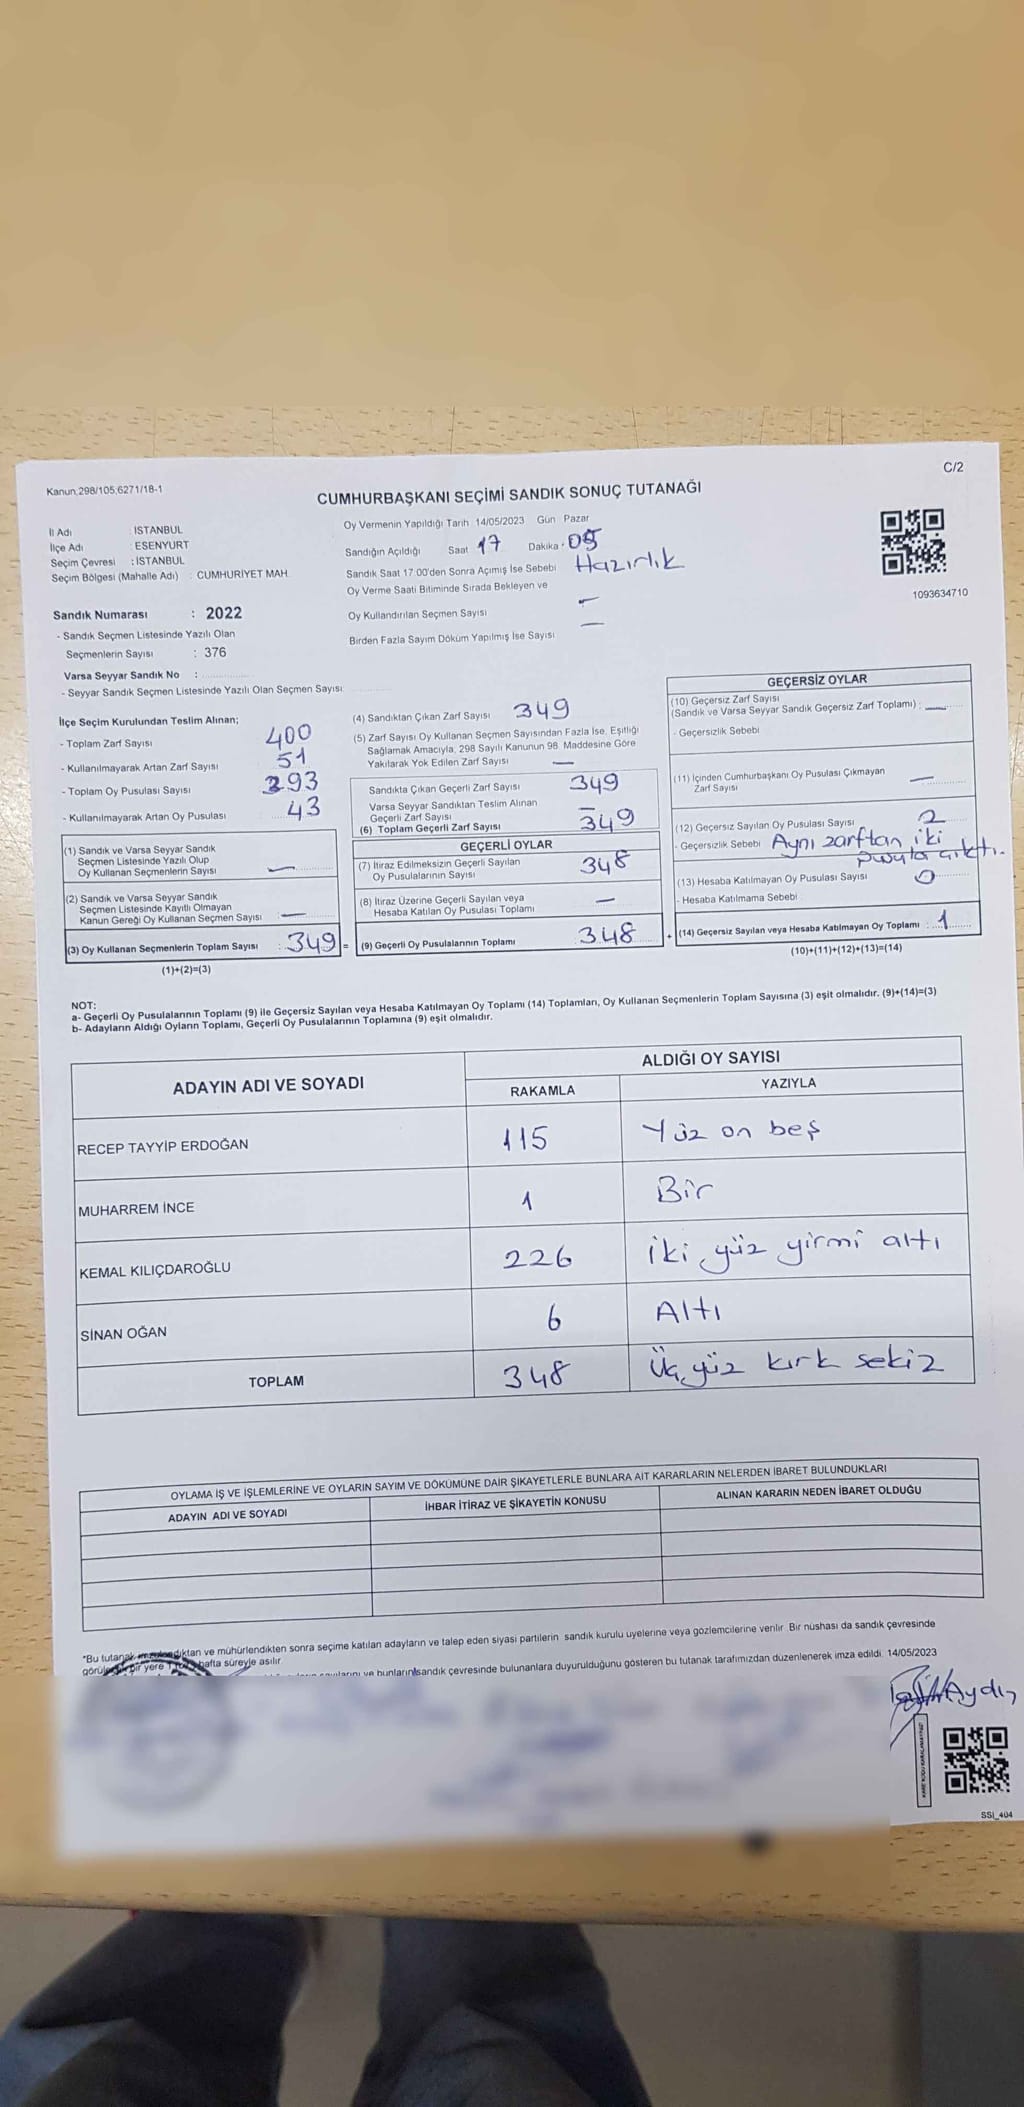 Kanun,298/105;6271/18-1
C/2
CUMHURBAŞKANI SEÇİMİ SANDIK SONUÇ TUTANAĞI
1093634710
İl Adı : İSTANBUL
İlçe Adı : ESENYURT
Seçim Çevresi : İSTANBUL
Seçim Bölgesi (Mahalle Adı) : CUMHURİYET MAH.
Sandık Numarası : 2022
- Sandık Seçmen Listesinde Yazılı Olan
Seçmenlerin Sayısı : 376
Varsa Seyyar Sandık No :
- Seyyar Sandık Seçmen Listesinde Yazılı Olan Seçmen Sayısı:
Oy Vermenin Yapıldığı Tarih 14/05/2023 Gün Pazar
Sandığın Açıldığı Saat 17 Dakika 05
Sandık Saat 17:00'den Sonra Açımış İse Sebebi Hazırlık
Oy Verme Saati Bitiminde Sırada Bekleyen ve
Oy Kullandırılan Seçmen Sayısı —
Birden Fazla Sayım Döküm Yapılmış İse Sayısı —
İlçe Seçim Kurulundan Teslim Alınan;
- Toplam Zarf Sayısı 400
- Kullanılmayarak Artan Zarf Sayısı 51
- Toplam Oy Pusulası Sayısı 393
- Kullanılmayarak Artan Oy Pusulası 43
(1) Sandık ve Varsa Seyyar Sandık
Seçmen Listesinde Yazılı Olup
Oy Kullanan Seçmenlerin Sayısı —
(2) Sandık ve Varsa Seyyar Sandık
Seçmen Listesinde Kayıtlı Olmayan
Kanun Gereği Oy Kullanan Seçmen Sayısı —
(3) Oy Kullanan Seçmenlerin Toplam Sayısı : 349 =
(1)+(2)=(3)
(4) Sandıktan Çıkan Zarf Sayısı 349
(5) Zarf Sayısı Oy Kullanan Seçmen Sayısından Fazla İse, Eşitliği
Sağlamak Amacıyla, 298 Sayılı Kanunun 98. Maddesine Göre
Yakılarak Yok Edilen Zarf Sayısı —
Sandıkta Çıkan Geçerli Zarf Sayısı 349
Varsa Seyyar Sandıktan Teslim Alınan
Geçerli Zarf Sayısı —
(6) Toplam Geçerli Zarf Sayısı 349
GEÇERLİ OYLAR
(7) İtiraz Edilmeksizin Geçerli Sayılan
Oy Pusulalarının Sayısı 348
(8) İtiraz Üzerine Geçerli Sayılan veya
Hesaba Katılan Oy Pusulası Toplamı —
(9) Geçerli Oy Pusulalarının Toplamı 348 +
GEÇERSİZ OYLAR
(10) Geçersiz Zarf Sayısı
(Sandık ve Varsa Seyyar Sandık Geçersiz Zarf Toplamı) : —
- Geçersizlik Sebebi
(11) İçinden Cumhurbaşkanı Oy Pusulası Çıkmayan
Zarf Sayısı —
(12) Geçersiz Sayılan Oy Pusulası Sayısı 2
- Geçersizlik Sebebi Aynı zarftan iki
pusula çıktı.
(13) Hesaba Katılmayan Oy Pusulası Sayısı 0
- Hesaba Katılmama Sebebi
(14) Geçersiz Sayılan veya Hesaba Katılmayan Oy Toplamı : 1
(10)+(11)+(12)+(13)=(14)
NOT:
a- Geçerli Oy Pusulalarının Toplamı (9) ile Geçersiz Sayılan veya Hesaba Katılmayan Oy Toplamı (14) Toplamları, Oy Kullanan Seçmenlerin Toplam Sayısına (3) eşit olmalıdır. (9)+(14)=(3)
b- Adayların Aldığı Oyların Toplamı, Geçerli Oy Pusulalarının Toplamına (9) eşit olmalıdır.
ADAYIN ADI VE SOYADI
ALDIĞI OY SAYISI
RAKAMLA YAZIYLA
RECEP TAYYİP ERDOĞAN 115 Yüz on beş
MUHARREM İNCE 1 Bir
KEMAL KILIÇDAROĞLU 226 iki yüz yirmi altı
SİNAN OĞAN 6 Altı
TOPLAM 348 Üç yüz kırk sekiz
OYLAMA İŞ VE İŞLEMLERİNE VE OYLARIN SAYIM VE DÖKÜMÜNE DAİR ŞİKAYETLERLE BUNLARA AİT KARARLARIN NELERDEN İBARET BULUNDUKLARI
ADAYIN ADI VE SOYADI İHBAR İTİRAZ VE ŞİKAYETİN KONUSU ALINAN KARARIN NEDEN İBARET OLDUĞU
*Bu tutanak ve mühürlendikten sonra seçime katılan adayların ve talep eden siyasi partilerin sandık kurulu üyelerine veya gözlemcilerine verilir. Bir nüshası da sandık çevresinde
bir yere hafta süreyle asılır.
ve bunların sandık çevresinde bulunanlara duyurulduğunu gösteren bu tutanak tarafımızdan düzenlenerek imza edildi. 14/05/2023
Aydın
SSİ_404